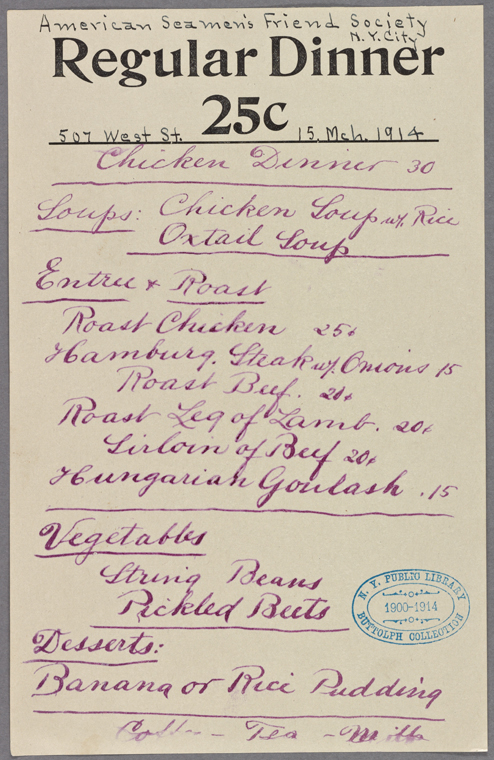 American Seamen's Friend Society
N.Y. City
Regular Dinner
25c
507 West St. 15. Mch. 1914
Chicken Dinner 30
Soups: Chicken Soup w/. Rice
Oxtail Soup
Entree & Roast
Roast Chicken 25¢
Hamburg. Steak w/. Onions 15
Roast Beef. 20¢
Roast Leg of Lamb. 20¢
Sirloin of Beef 20¢
Hungarian Goulash .15
Vegetables
String Beans
Pickled Beets
N. Y. PUBLIC LIBRARY
1900-1914
BUTTOLPH COLLECTION
Desserts:
Banana or Rice Pudding
Coffee - Tea - Milk